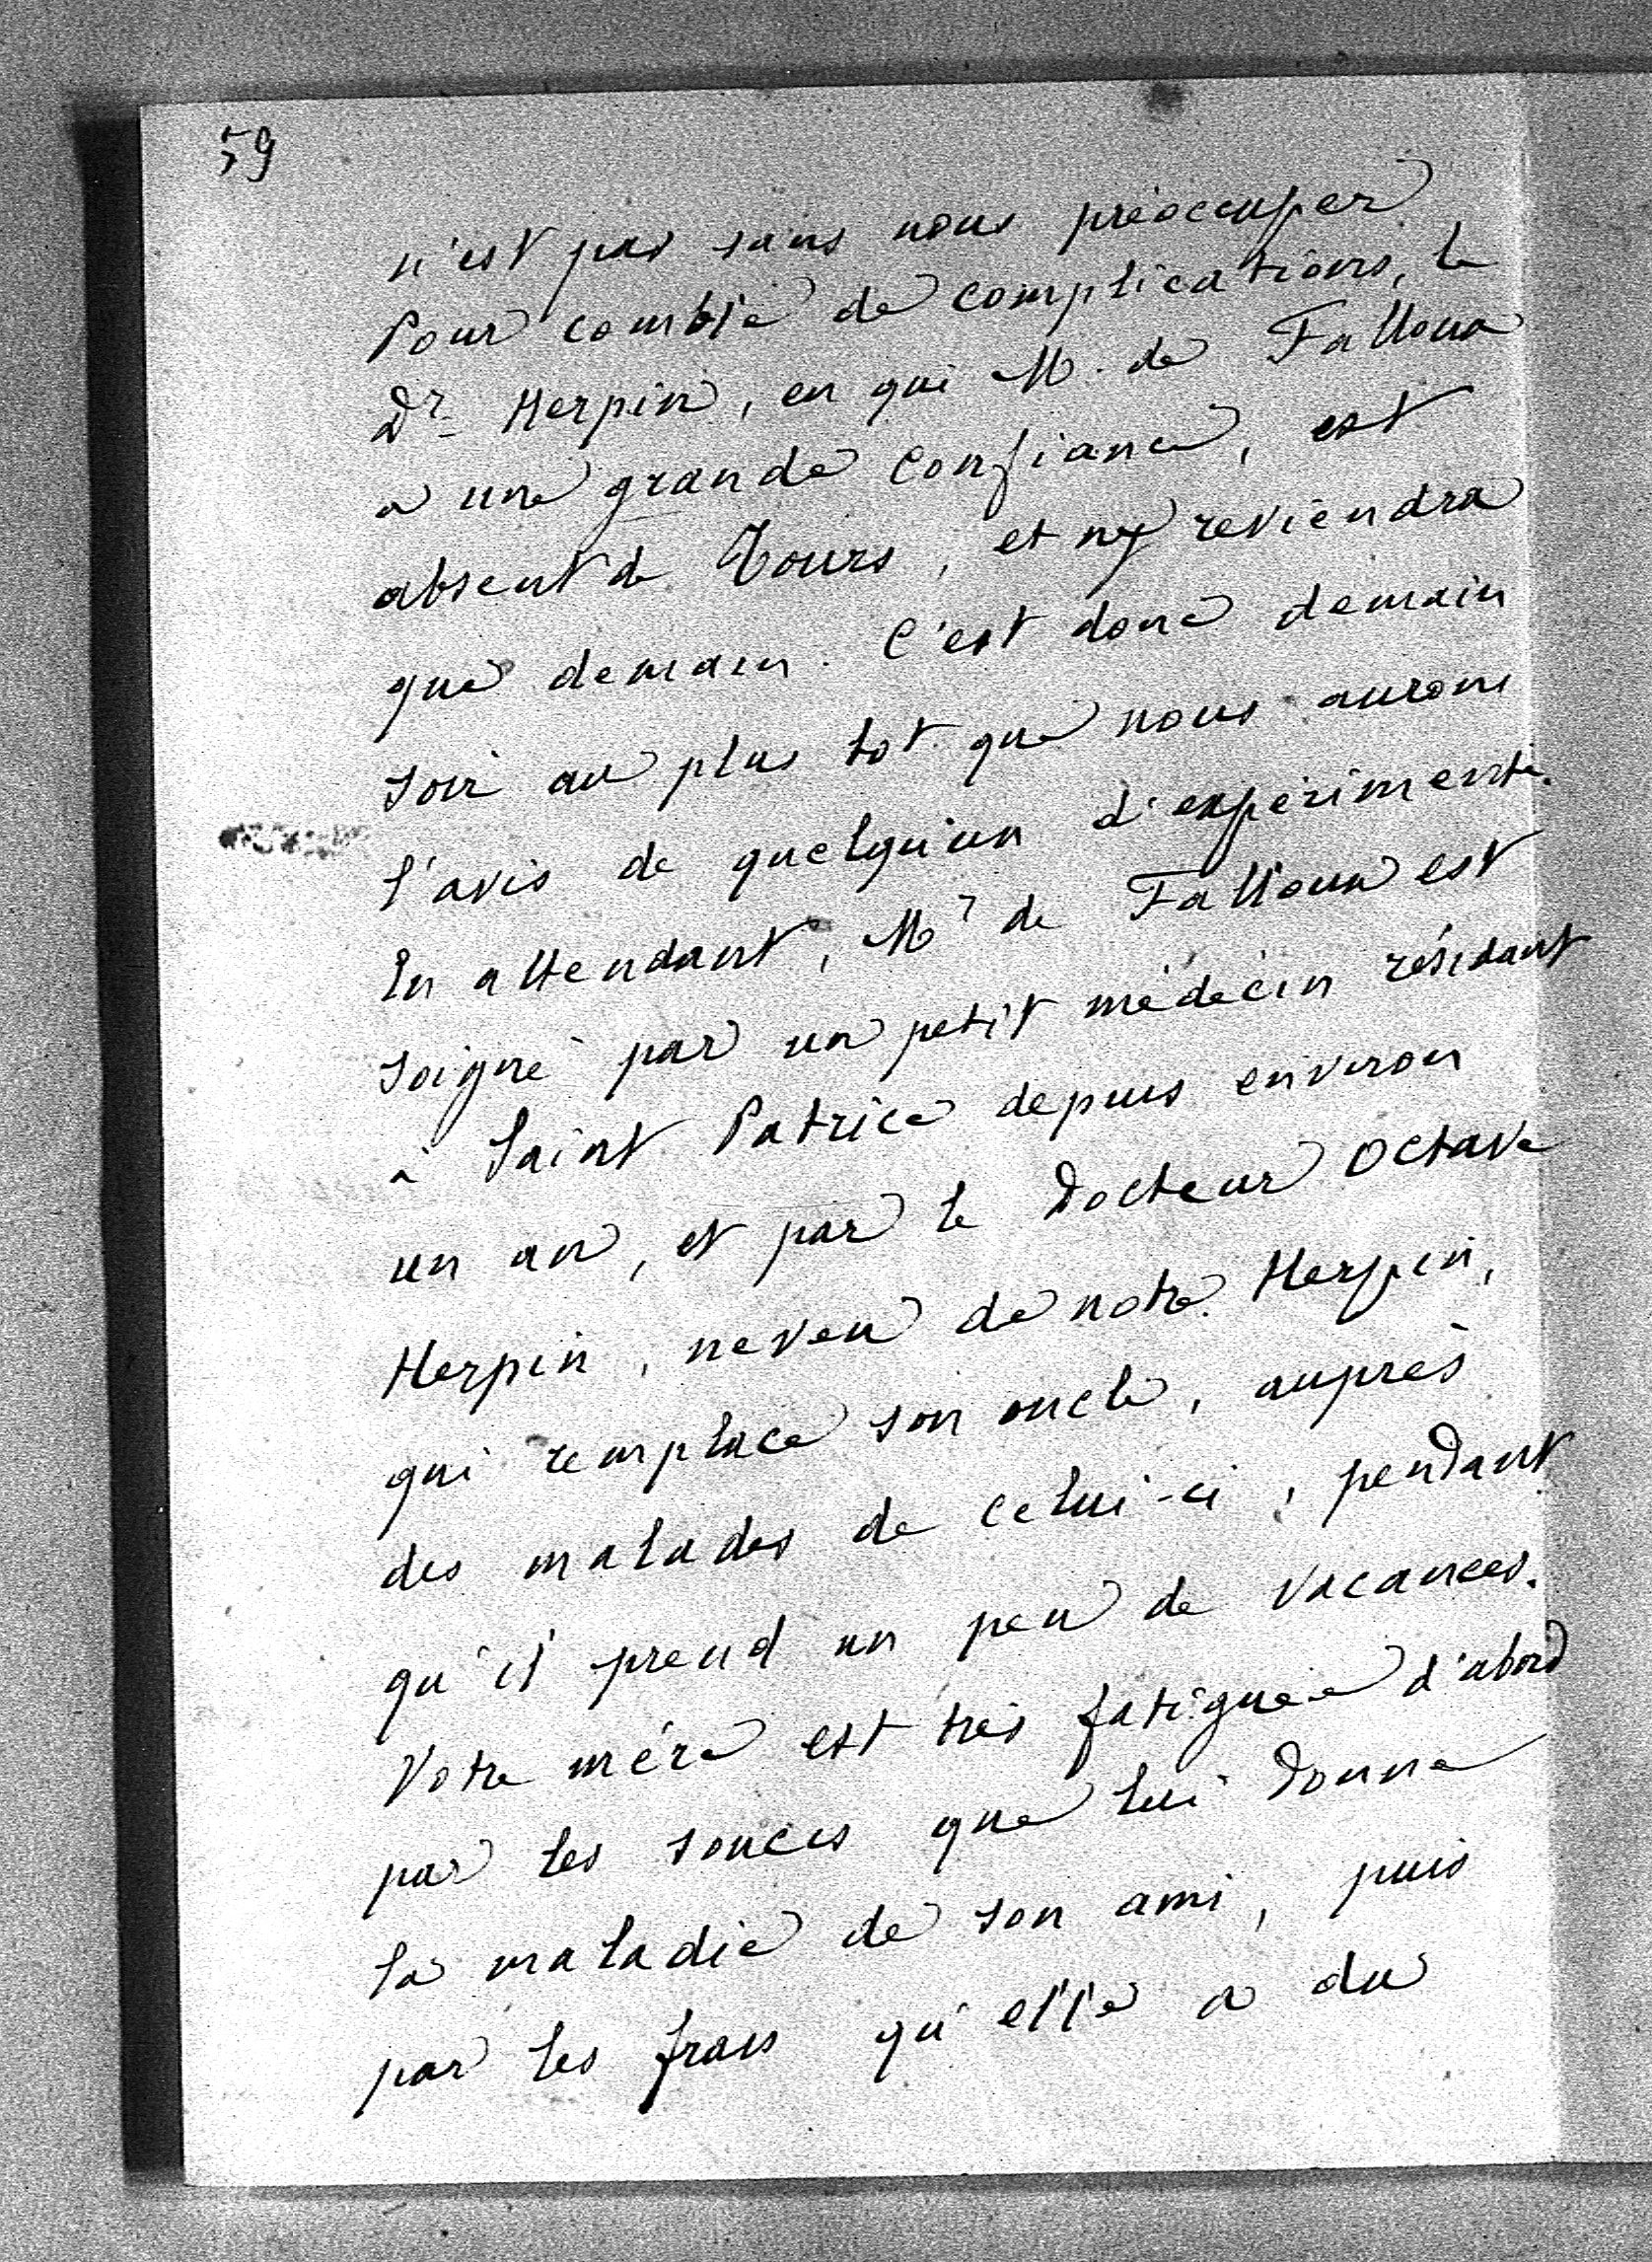 59
n'est pas sans nous préoccuper
Pour comble de complications, le
Dr Herpin, en qui M. de Falloux
a une grande confiance, est
absent de Tours, et n'y reviendra
que demain. C'est donc demain
soir au plus tot que nous aurons
l'avis de quelqu'un d'expérimenté.
En attendant, Mr de Falloux est
soigné par un petit médecin résidant
à Saint Patrice depuis environ
un an, et par le Docteur Octave
Herpin, neveu de notre Herpin,
qui remplace son oncle, auprès
des malades de celui-ci, pendant
qu'il prend un peu de vacances.
Votre mère est très fatiguée d'abord
par les soucis que lui donne
la maladie de son ami, puis
par les frais qu'elle a du